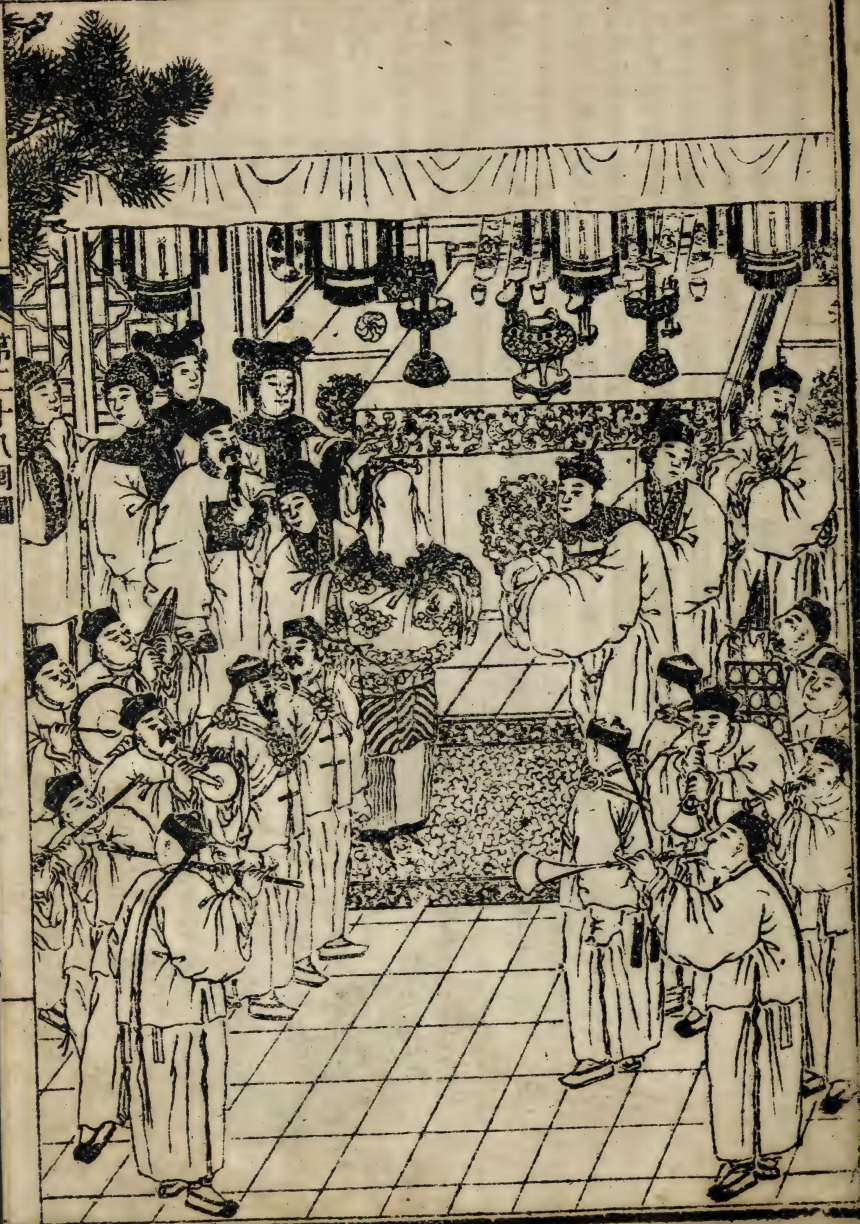 第二十八回圖